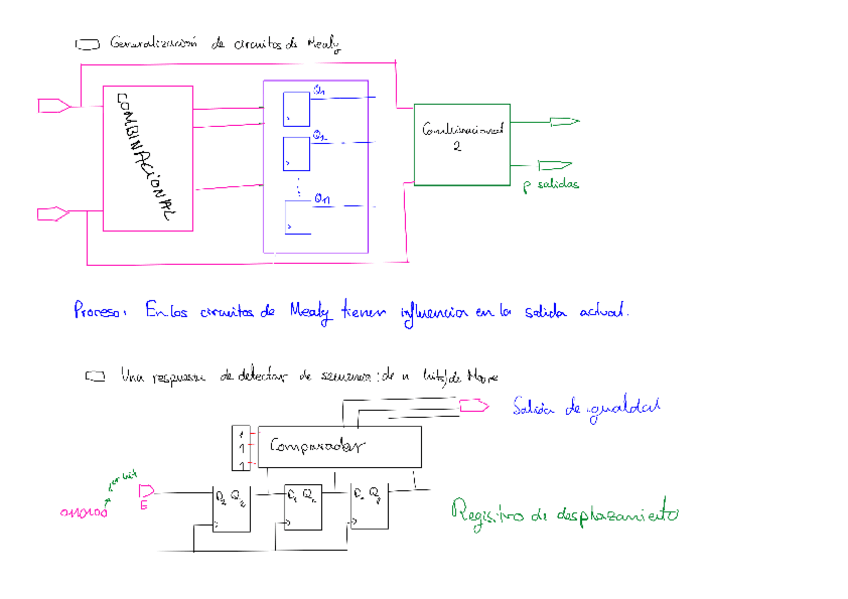 Generalización de circuitos de Mealy
COMBINACIONAL
Q1
Q2
Qn
Combinacional
2
p salidas
Proceso: En los circuitos de Mealy tienen influencia en la salida actual.
Una respuesta de detectar de secuencia de n bits/de Moore
Salida de igualdad
1
1
1
Comparador
1er bit
E
D2 Q2
D1 Q1
D0 Q0
Registro de desplazamiento